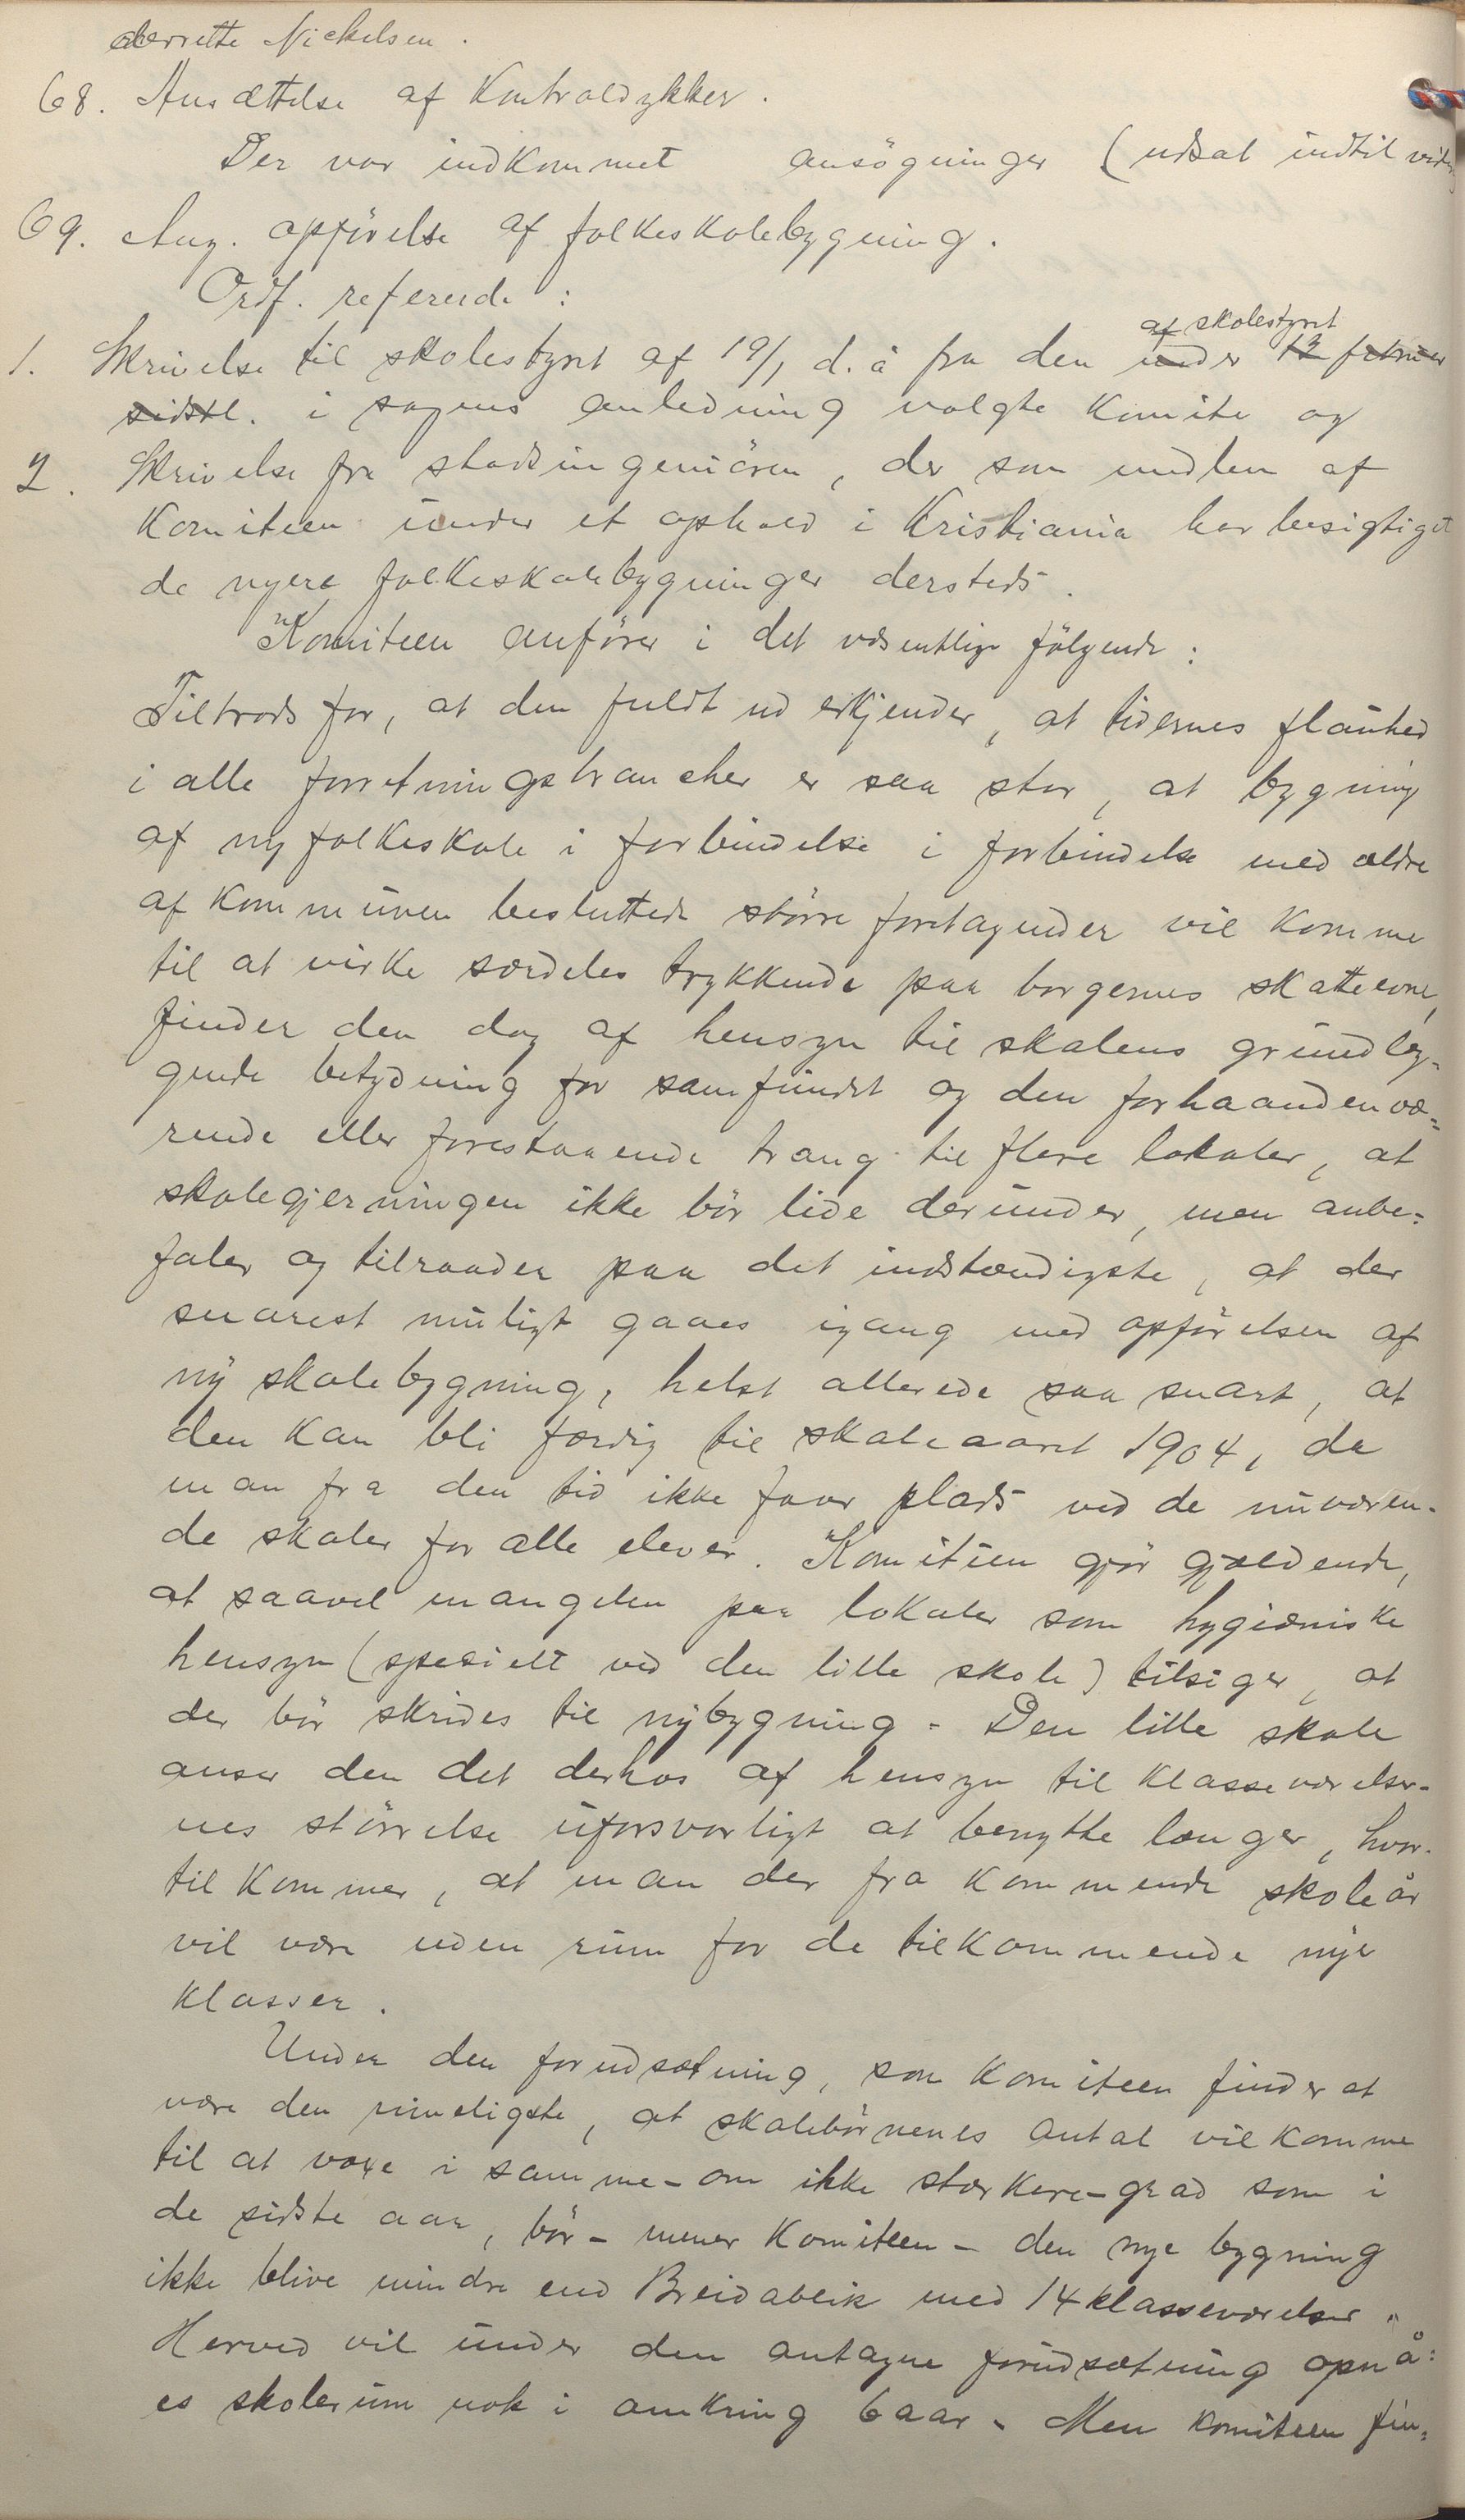 Nickelsen.
68. Ansættelse af Kontroldykker.
Der var indkommet ansögninger (udsat indtil vid
69. Ang. opförelse af folkeskolebygning.
Ordf. refererede:
af skolestyret
1. Skrivelse til skolestyret af 19/1 d. å fra den under 12 februar
sidstl. i sagens anledning valgte Komite og
2. Skrivelse fra stadsingeniören, der som medlem af
Komiteen under et ophold i Kristiania har besigtiget
de nyere folkeskolebygninger dersteds.
"Komiteen anförer i det væsentlige fölgende:
Tiltrods for, at den fuldt ud erkjender, at tidernes flauhed
i alle forretningsbrancher er saa stor, at bygning
af ny folkeskole i forbindelse i forbindelse med ældre
af Kommunen besluttede större foretagender vil komme
til at virke særdeles trykkende paa borgernes skatteevne,
finder den dog af hensyn til skolens grundlæg-
gende betydning for samfundet og den forhaandenvæ=
rende eller forestaaende trang til flere lokaler, at
skolegjerningen ikke bör lide derunder, men anbe=
faler og tilraader paa det indstændigste, at der
snarest muligt gaaes igang med opförelsen af
ny skolebygning, helst allerede saa snart, at
den kan bli færdig til skoleaaret 1904, da
man fra den tid ikke faar plads ved de nuværen-
de skoler for alle elever. "Komiteen gjör gjældende,
at saavel mangelen paa lokaler som hygiæniske
hensyn (specielt ved den lille skole) tilsiger, at
der bör skrides til nybygning. Den lille skole
anser den det derhos af hensyn til klasseværelser-
nes störrelse uforsvarligt at benytte længer, hvor-
til kommer, at man der fra kommende skoleår
vil være uden rum for de tilkommende nye
klasser.
Under den forudsætning, som Komiteen finder at
være den rimeligste, at skolebörnenes antal vil komme
til at voxe i samme - om ikke stærkere - grad som i
de sidste aar, bör - mener Komiteen - den nye bygning
ikke blive mindre end Breidablik med 14 klasseværelser."
Herved vil under den antagne forudsætning opnå=
es skolerum nok i omkring 6 aar. Men komiteen fin=